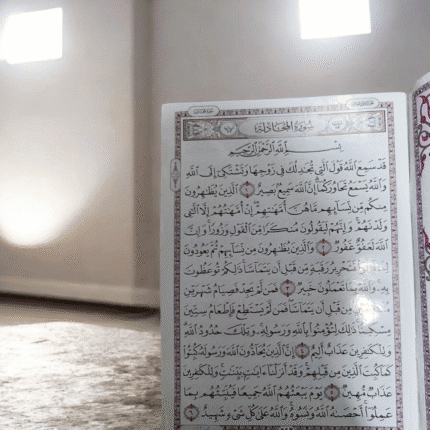 سُورَةُ المُجَادلة
بِسْمِ اللَّهِ الرَّحْمَٰنِ الرَّحِيمِ
قَدْ سَمِعَ اللَّهُ قَوْلَ الَّتِي تُجَادِلُكَ فِي زَوْجِهَا وَتَشْتَكِي إِلَى اللَّهِ
وَاللَّهُ يَسْمَعُ تَحَاوُرَكُمَا إِنَّ اللَّهَ سَمِيعٌ بَصِيرٌ ١ الَّذِينَ يُظَاهِرُونَ
مِنكُم مِّن نِّسَائِهِم مَّا هُنَّ أُمَّهَاتِهِمْ إِنْ أُمَّهَاتُهُمْ إِلَّا اللَّائِي
وَلَدْنَهُمْ وَإِنَّهُمْ لَيَقُولُونَ مُنكَرًا مِّنَ الْقَوْلِ وَزُورًا وَإِنَّ
اللَّهَ لَعَفُوٌّ غَفُورٌ ٢ وَالَّذِينَ يُظَاهِرُونَ مِن نِّسَائِهِمْ ثُمَّ يَعُودُونَ
فَتَحْرِيرُ رَقَبَةٍ مِّن قَبْلِ أَن يَتَمَاسَّا ذَٰلِكُمْ تُوعَظُونَ
بِهِ وَاللَّهُ بِمَا تَعْمَلُونَ خَبِيرٌ ٣ فَمَن لَّمْ يَجِدْ فَصِيَامُ شَهْرَيْنِ
مِن قَبْلِ أَن يَتَمَاسَّا فَمَن لَّمْ يَسْتَطِعْ فَإِطْعَامُ سِتِّينَ
مِسْكِينًا ذَٰلِكَ لِتُؤْمِنُوا بِاللَّهِ وَرَسُولِهِ وَتِلْكَ حُدُودُ اللَّهِ
وَلِلْكَافِرِينَ عَذَابٌ أَلِيمٌ ٤ إِنَّ الَّذِينَ يُحَادُّونَ اللَّهَ وَرَسُولَهُ كُبِتُوا
كَمَا كُبِتَ الَّذِينَ مِن قَبْلِهِمْ وَقَدْ أَنزَلْنَا آيَاتٍ بَيِّنَاتٍ وَلِلْكَافِرِينَ
عَذَابٌ مُّهِينٌ ٥ يَوْمَ يَبْعَثُهُمُ اللَّهُ جَمِيعًا فَيُنَبِّئُهُم بِمَا
عَمِلُوا أَحْصَاهُ اللَّهُ وَنَسُوهُ وَاللَّهُ عَلَىٰ كُلِّ شَيْءٍ شَهِيدٌ ٦